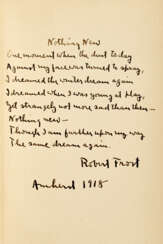 Nothing New
One moment when the dust today
Against my face was turned to spray,
I dreamed the winter dream again
I dreamed when I was young at play,
Yet strangely not more sad than then —
Nothing new —
Though I am further upon my way
The same dream again.
Robert Frost
Amherst 1918